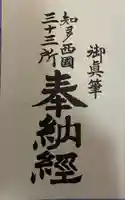 御真筆
知多西國
三十三所
奉納經